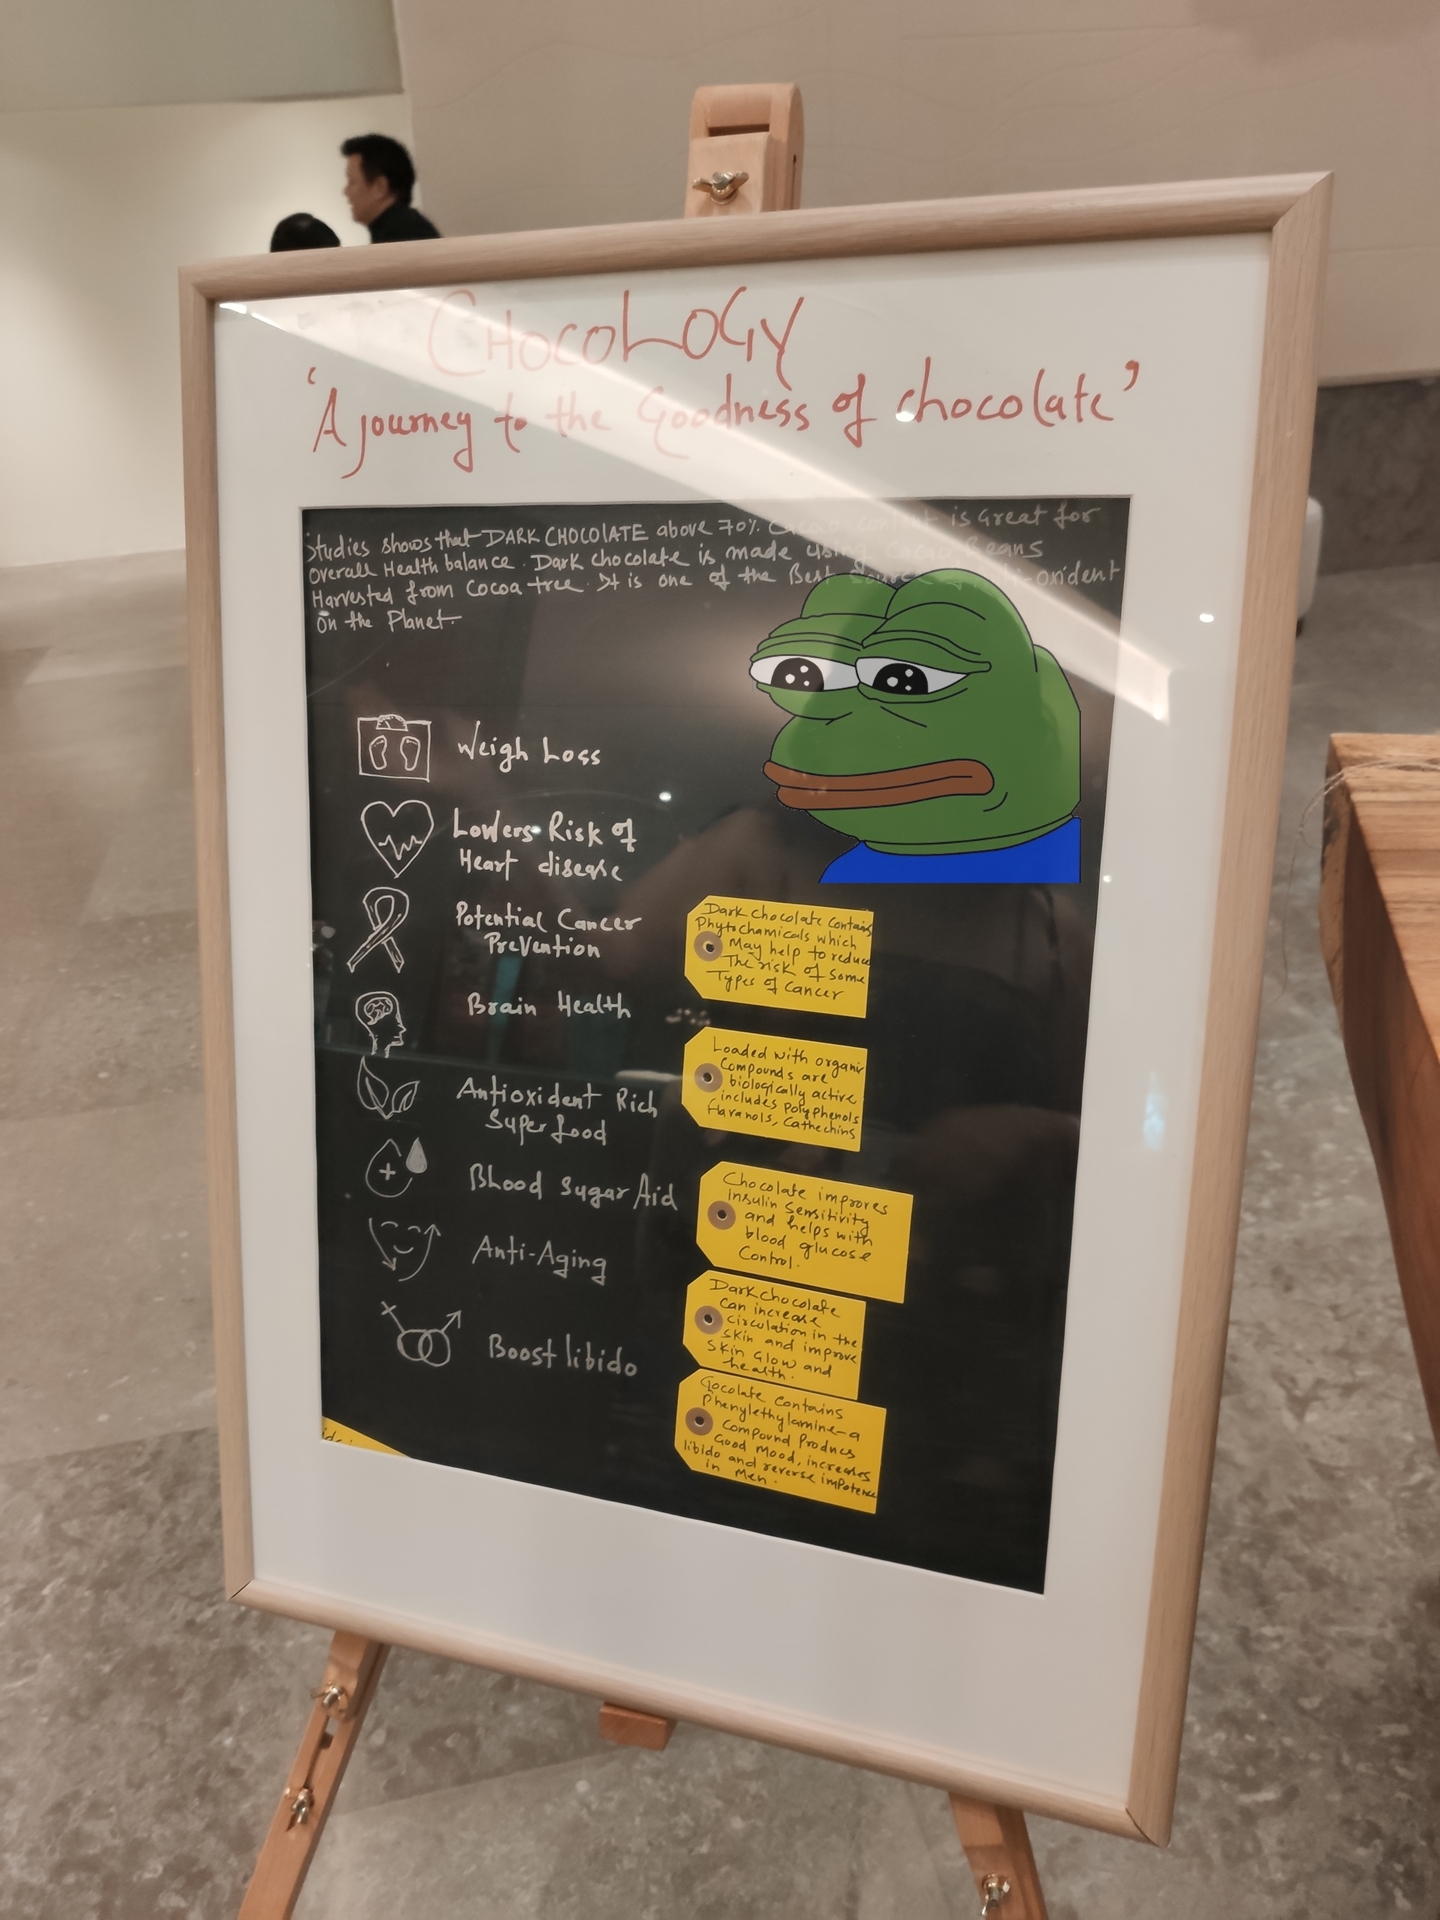 CHOCOLOGY
'A journey to the Goodness of chocolate'
Studies shows that DARK CHOCOLATE above 70% Cacao content is Great for
Overall Health balance. Dark chocolate is made using Cacao Beans
Harvested from Cocoa tree. It is one of the Best Source
on the Planet.
Weigh Loss
Lowers Risk of
Heart disease
Potential Cancer
Prevention
Dark chocolate contains
Phytochamicals which
May help to reduce
The risk of some
Types of cancer
Brain Health
Loaded with organic
Compounds are
biologically active
includes Polyphenols
flavanols, Cathechins
Antioxident Rich
Super food
Blood Sugar Aid
Chocolate improves
insulin Sensitivity
and helps with
blood glucose
Control.
Anti-Aging
Dark chocolate
can increase
circulation in the
skin and improve
Skin Glow and
health.
Boost libido
Cocolate contains
Phenylethylamine-a
Compound Produces
Good mood, increases
libido and reverse impotence
in Men.